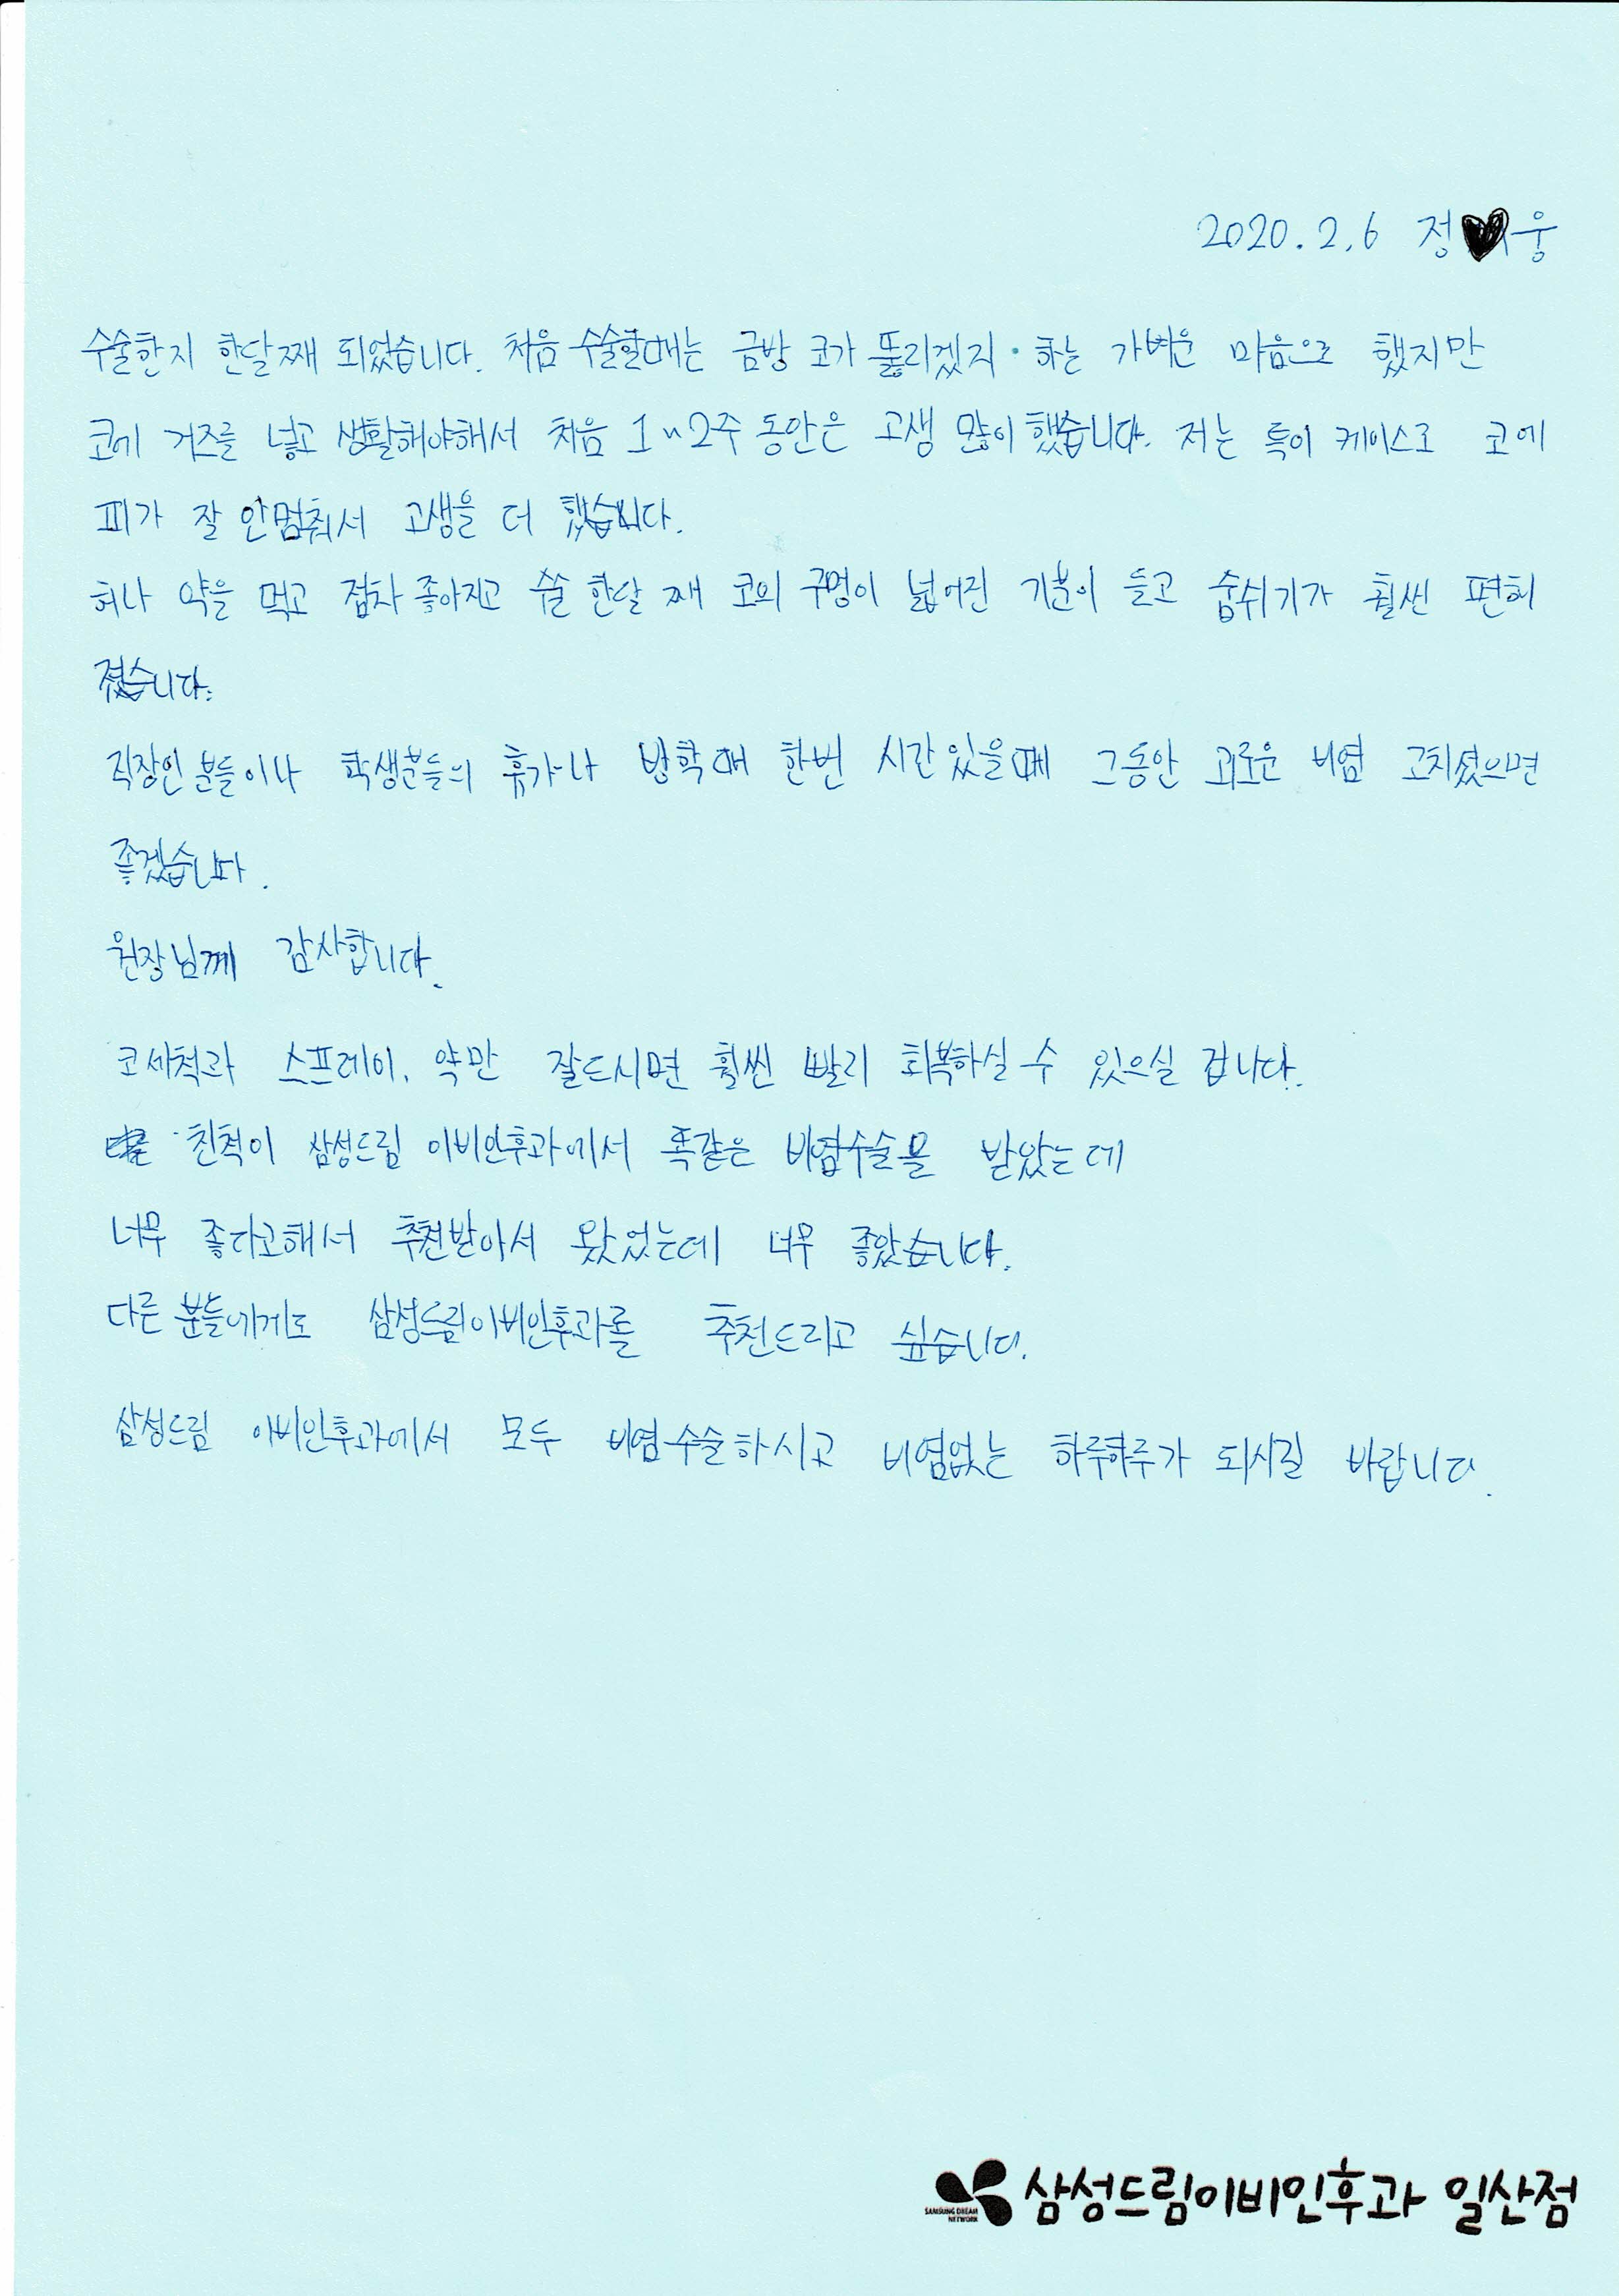 2020.2.6 정 웅
수술한지 한달째 되었습니다. 처음 수술할때는 금방 코가 뚫리겠지 · 하는 가벼운 마음으로 했지만
코에 거즈를 넣고 생활해야해서 처음 1~2주 동안은 고생 많이 했습니다. 저는 특이 케이스로 코에
피가 잘 안멈춰서 고생을 더 했습니다.
허나 약을 먹고 점차 좋아지고 수술 한달 째 코의 구멍이 넓어진 기분이 들고 숨쉬기가 훨씬 편해
졌습니다.
직장인 분들이나 학생분들의 휴가나 방학때 한번 시간있을때 그동안 괴로운 비염 고치셨으면
좋겠습니다.
원장님께 감사합니다.
코세척과 스프레이, 약만 잘드시면 훨씬 빨리 회복하실 수 있으실 겁니다.
친척이 삼성드림 이비인후과에서 똑같은 비염수술을 받았는데
너무 좋다고해서 추천받아서 왔었는데 너무 좋았습니다.
다른 분들에게도 삼성드림이비인후과를 추천드리고 싶습니다.
삼성드림 이비인후과에서 모두 비염수술하시고 비염없는 하루하루가 되시길 바랍니다.
SAMSUNG DREAM
NETWORK
삼성드림이비인후과 일산점